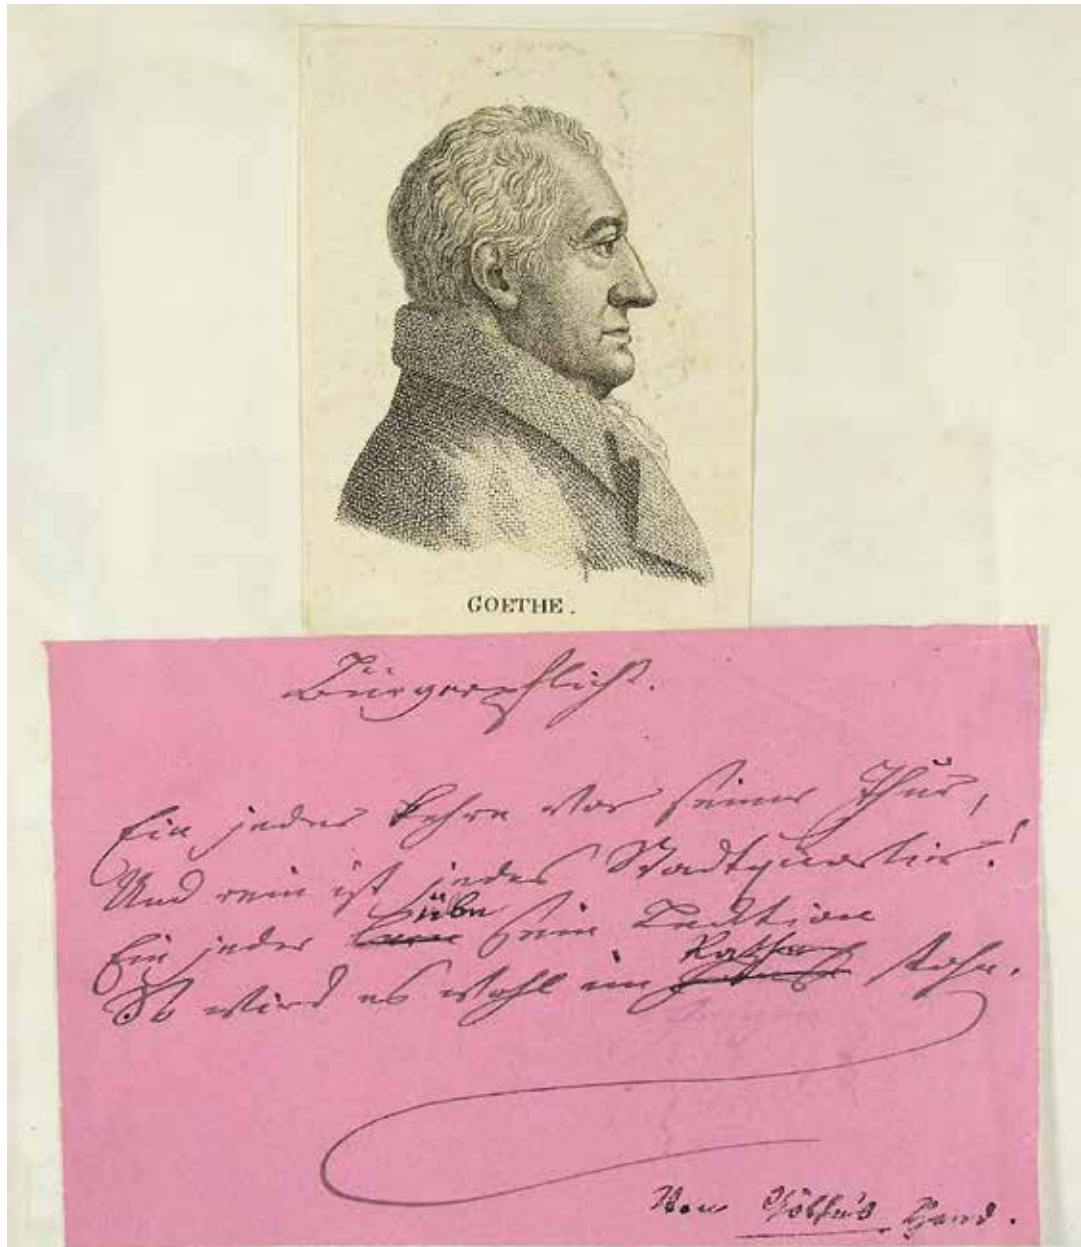 GOETHE.
Bürgerpflicht.
Ein jeder kehre vor seiner Thür,
Und rein ist jedes Stadtquartier!
übe
Ein jeder sein Lecktion
Rathe
So wird es wohl im stohn.
Von Göthe's Hand.